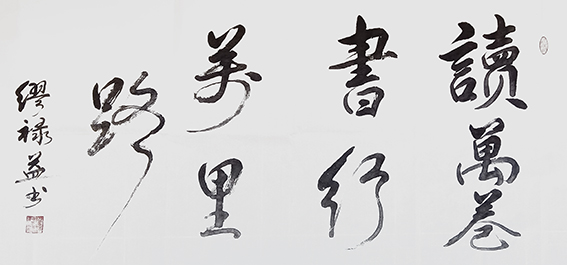 讀萬卷
書行
萬里
路
繆祿益书